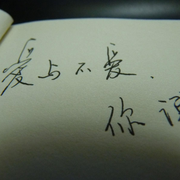 爱与不爱、
你说